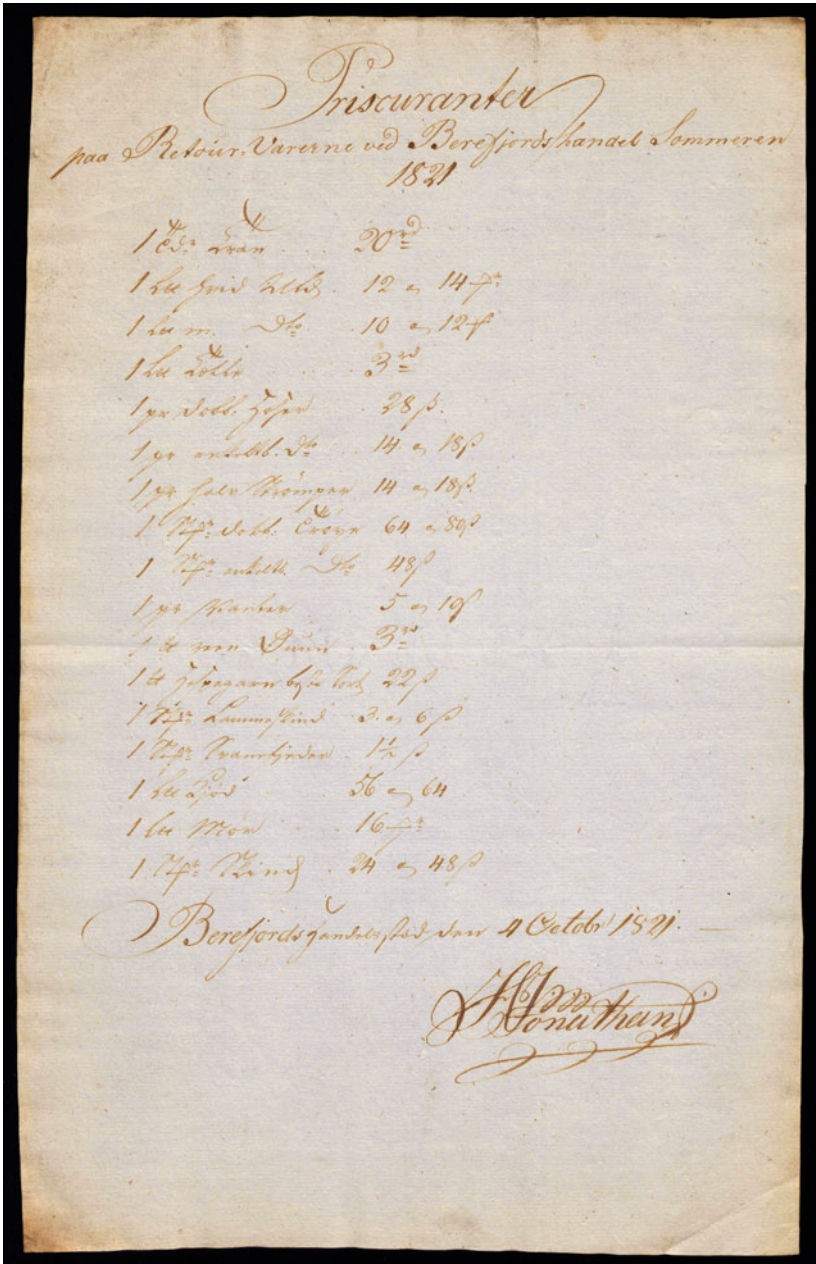 Priscuranter
paa Retour Varerne ved Berefjords handel Sommeren
1821
1 Tdr Tran 20 rd
1 Ltt hvid Uld 12 a 14
1 Ltt m. Dto 10 a 12
1 Ltt Tolle 3 rd
1 pr dobb. Hoser 28 ß.
1 pr enkelt. Dto 14 a 18 ß
1 pr halv Strömper 14 a 18 ß.
1 Stk dobb. Tröye 64 a 80 ß
1 Stk enkelt. Dto 48 ß
1 pr Vanter 5 a 10 ß
1 tt reen Duun 3 rd
1 tt Hosegarn beste Sort 22 ß
1 Lammeskind 3 a 6 ß
1 Svanefjeder 1½ ß
1 Ltt Kjöd 56 a 64
1 Ltt Mör 16
1 Skind 24 a 48 ß
Berefjords Handelsted, den 4 Octobr 1821.
Jonathan